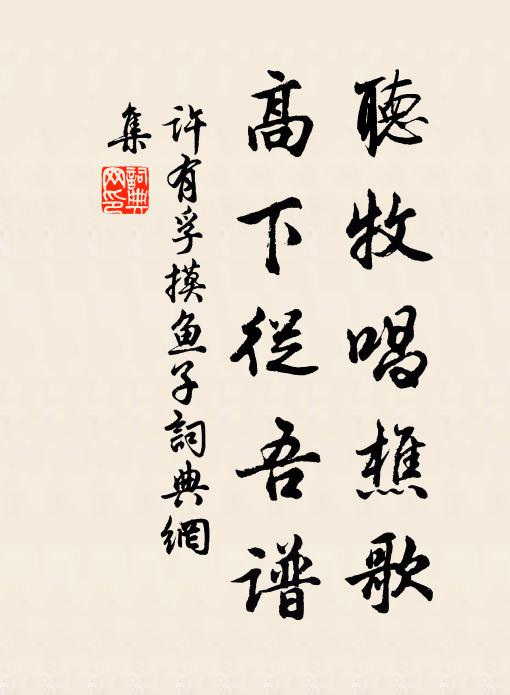 聽牧唱樵歌
高下從吾譜
许有孚摸鱼子詞典網
集
詞典網印